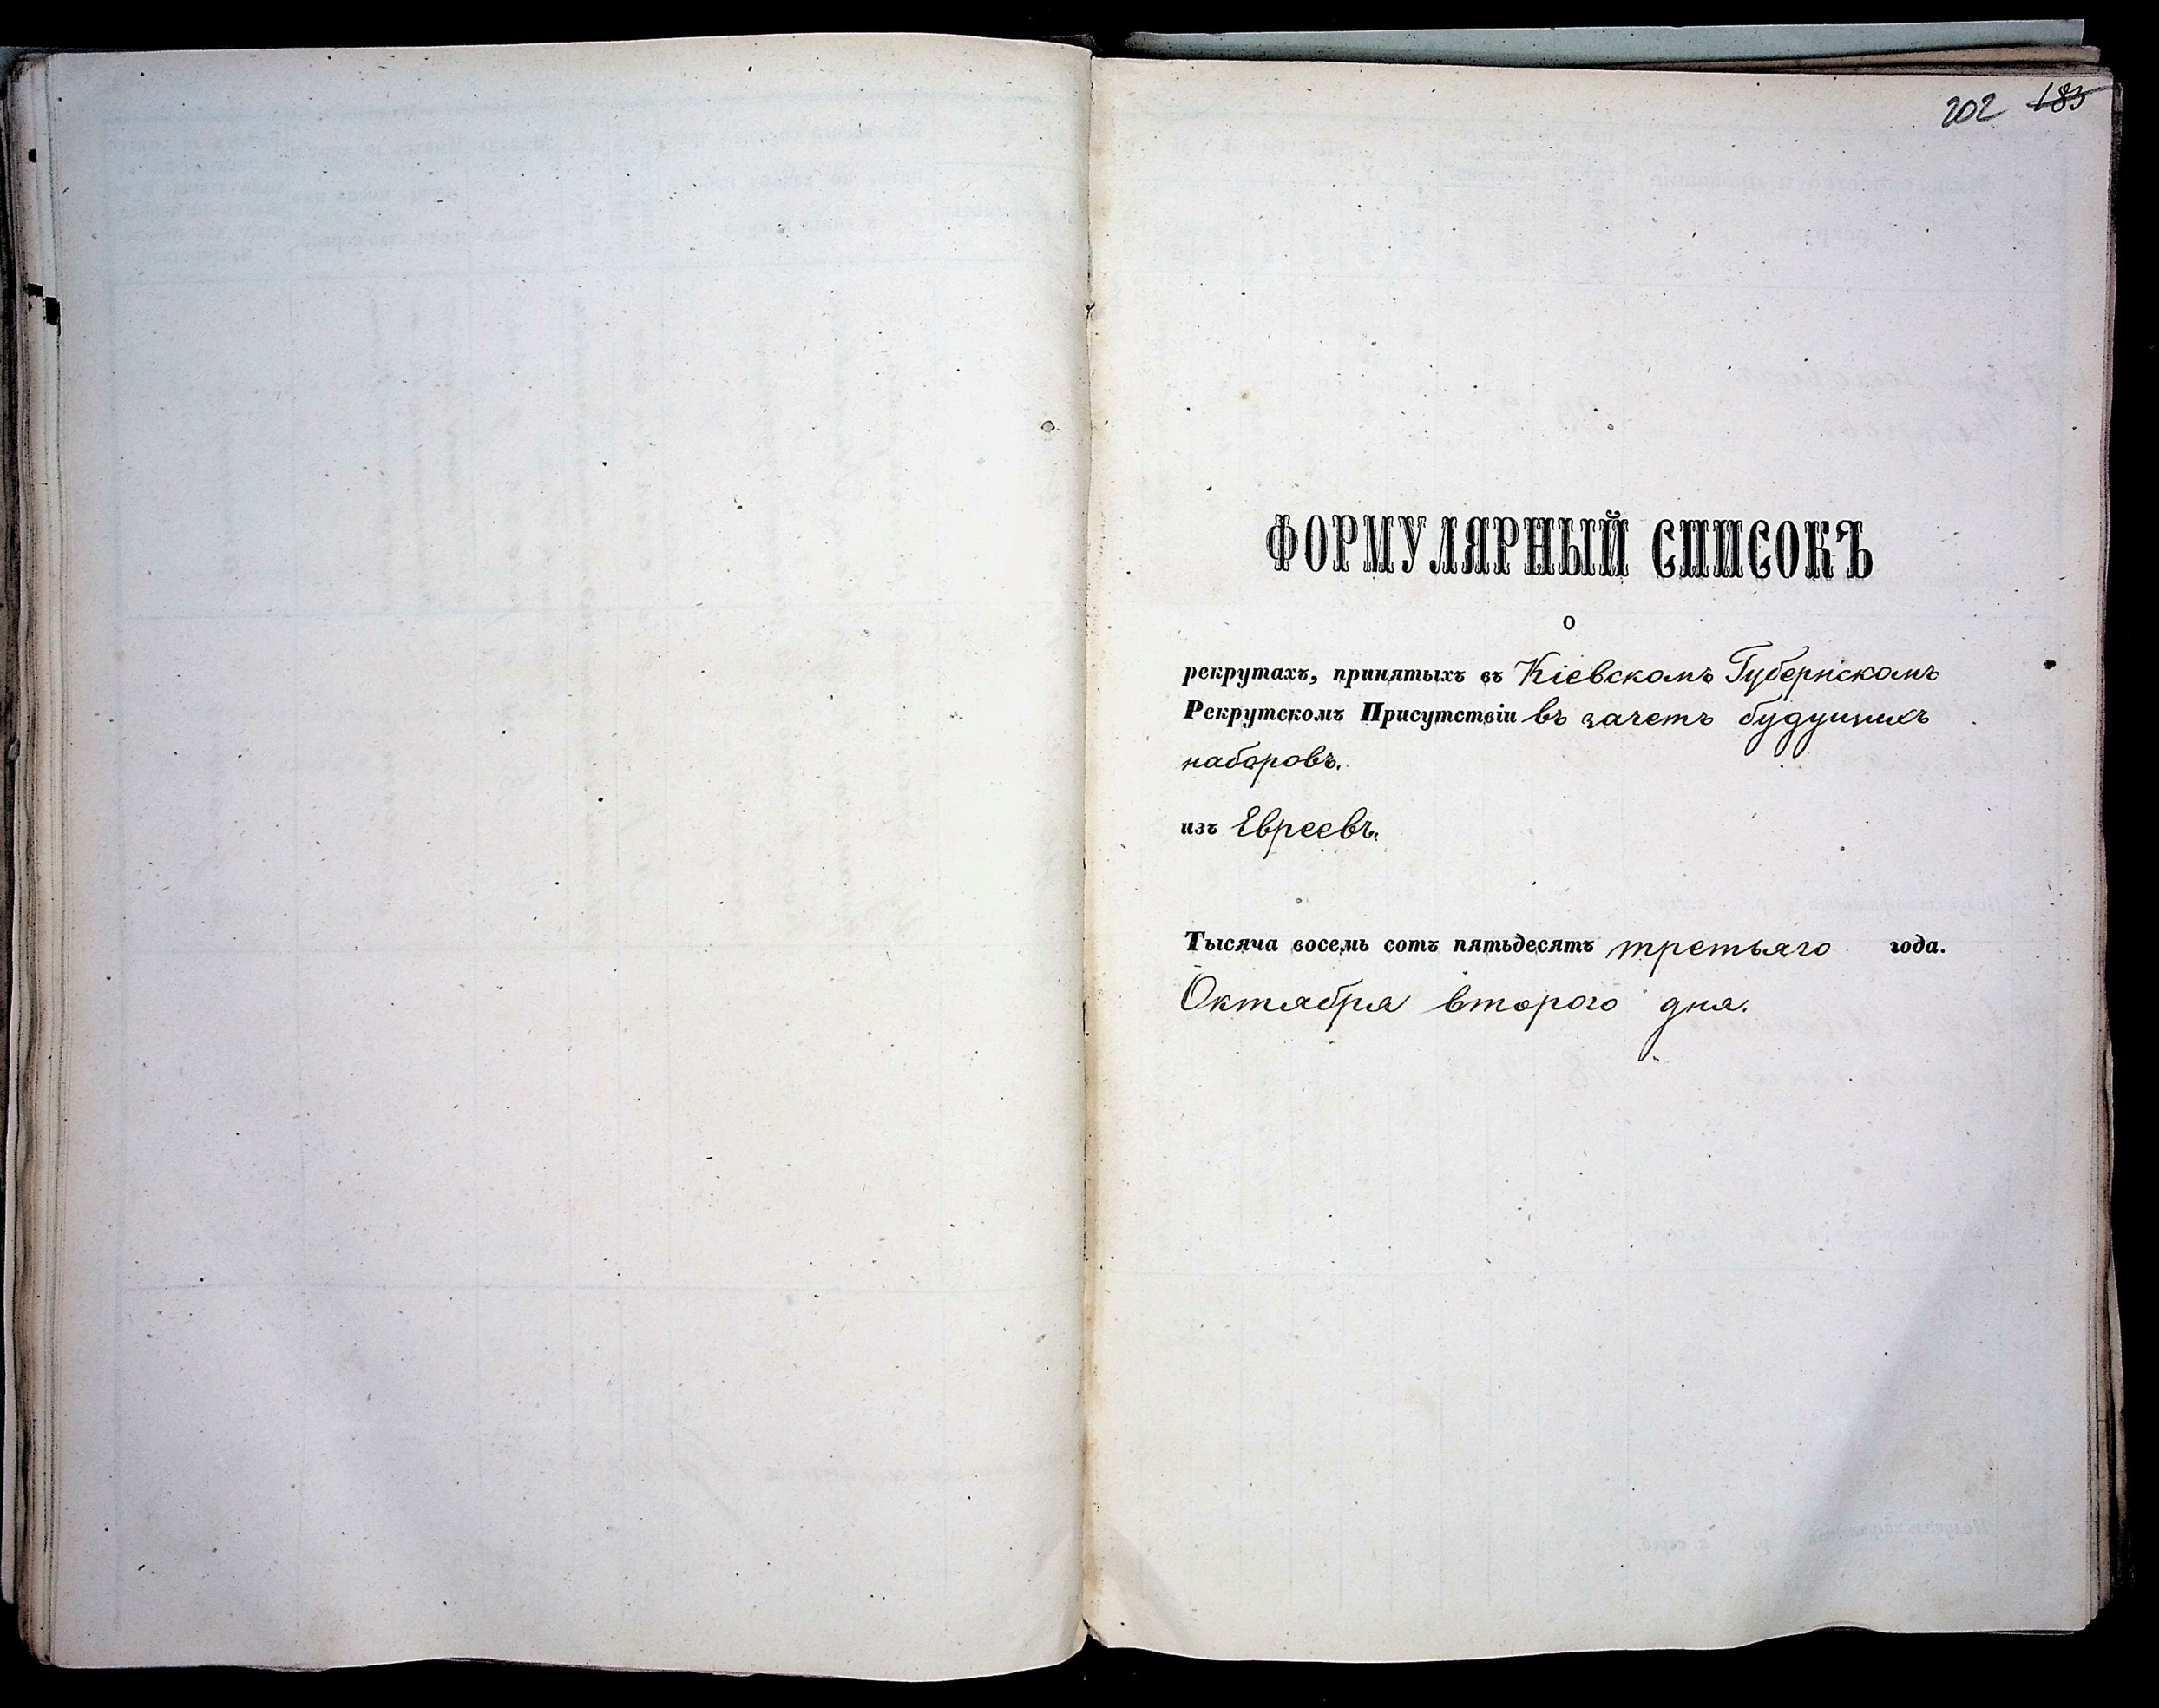 202 183
ФОРМУЛЯРНЫЙ СПИСОКЪ
о
рекрутахъ, принятыхъ въ Кіевскомъ Губернскомъ
Рекрутскомъ Присутствіи въ зачетъ будущихъ
наборовъ.
изъ Евреевъ.
Тысяча восемь сотъ пятьдесятъ третьяго года.
Октября второго дня.